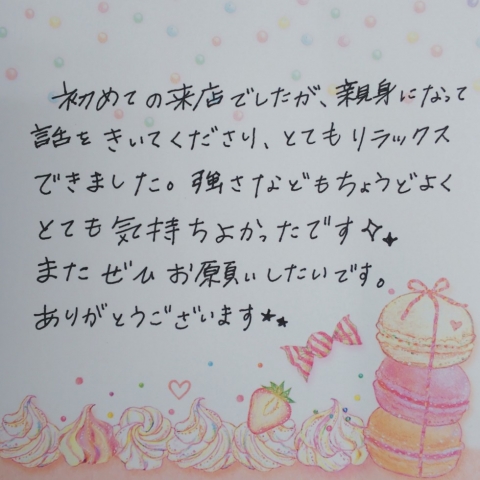 初めての来店でしたが、親身になって
話をきいてくださり、とてもリラックス
できました。強さなどもちょうどよく
とても気持ちよかったです✧˖
またぜひお願いしたいです。
ありがとうございます★⋆